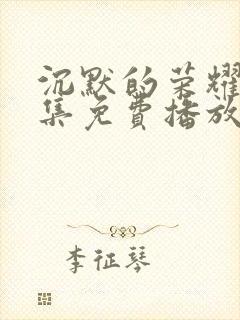 沉默的荣耀
集免费播放
李征琴